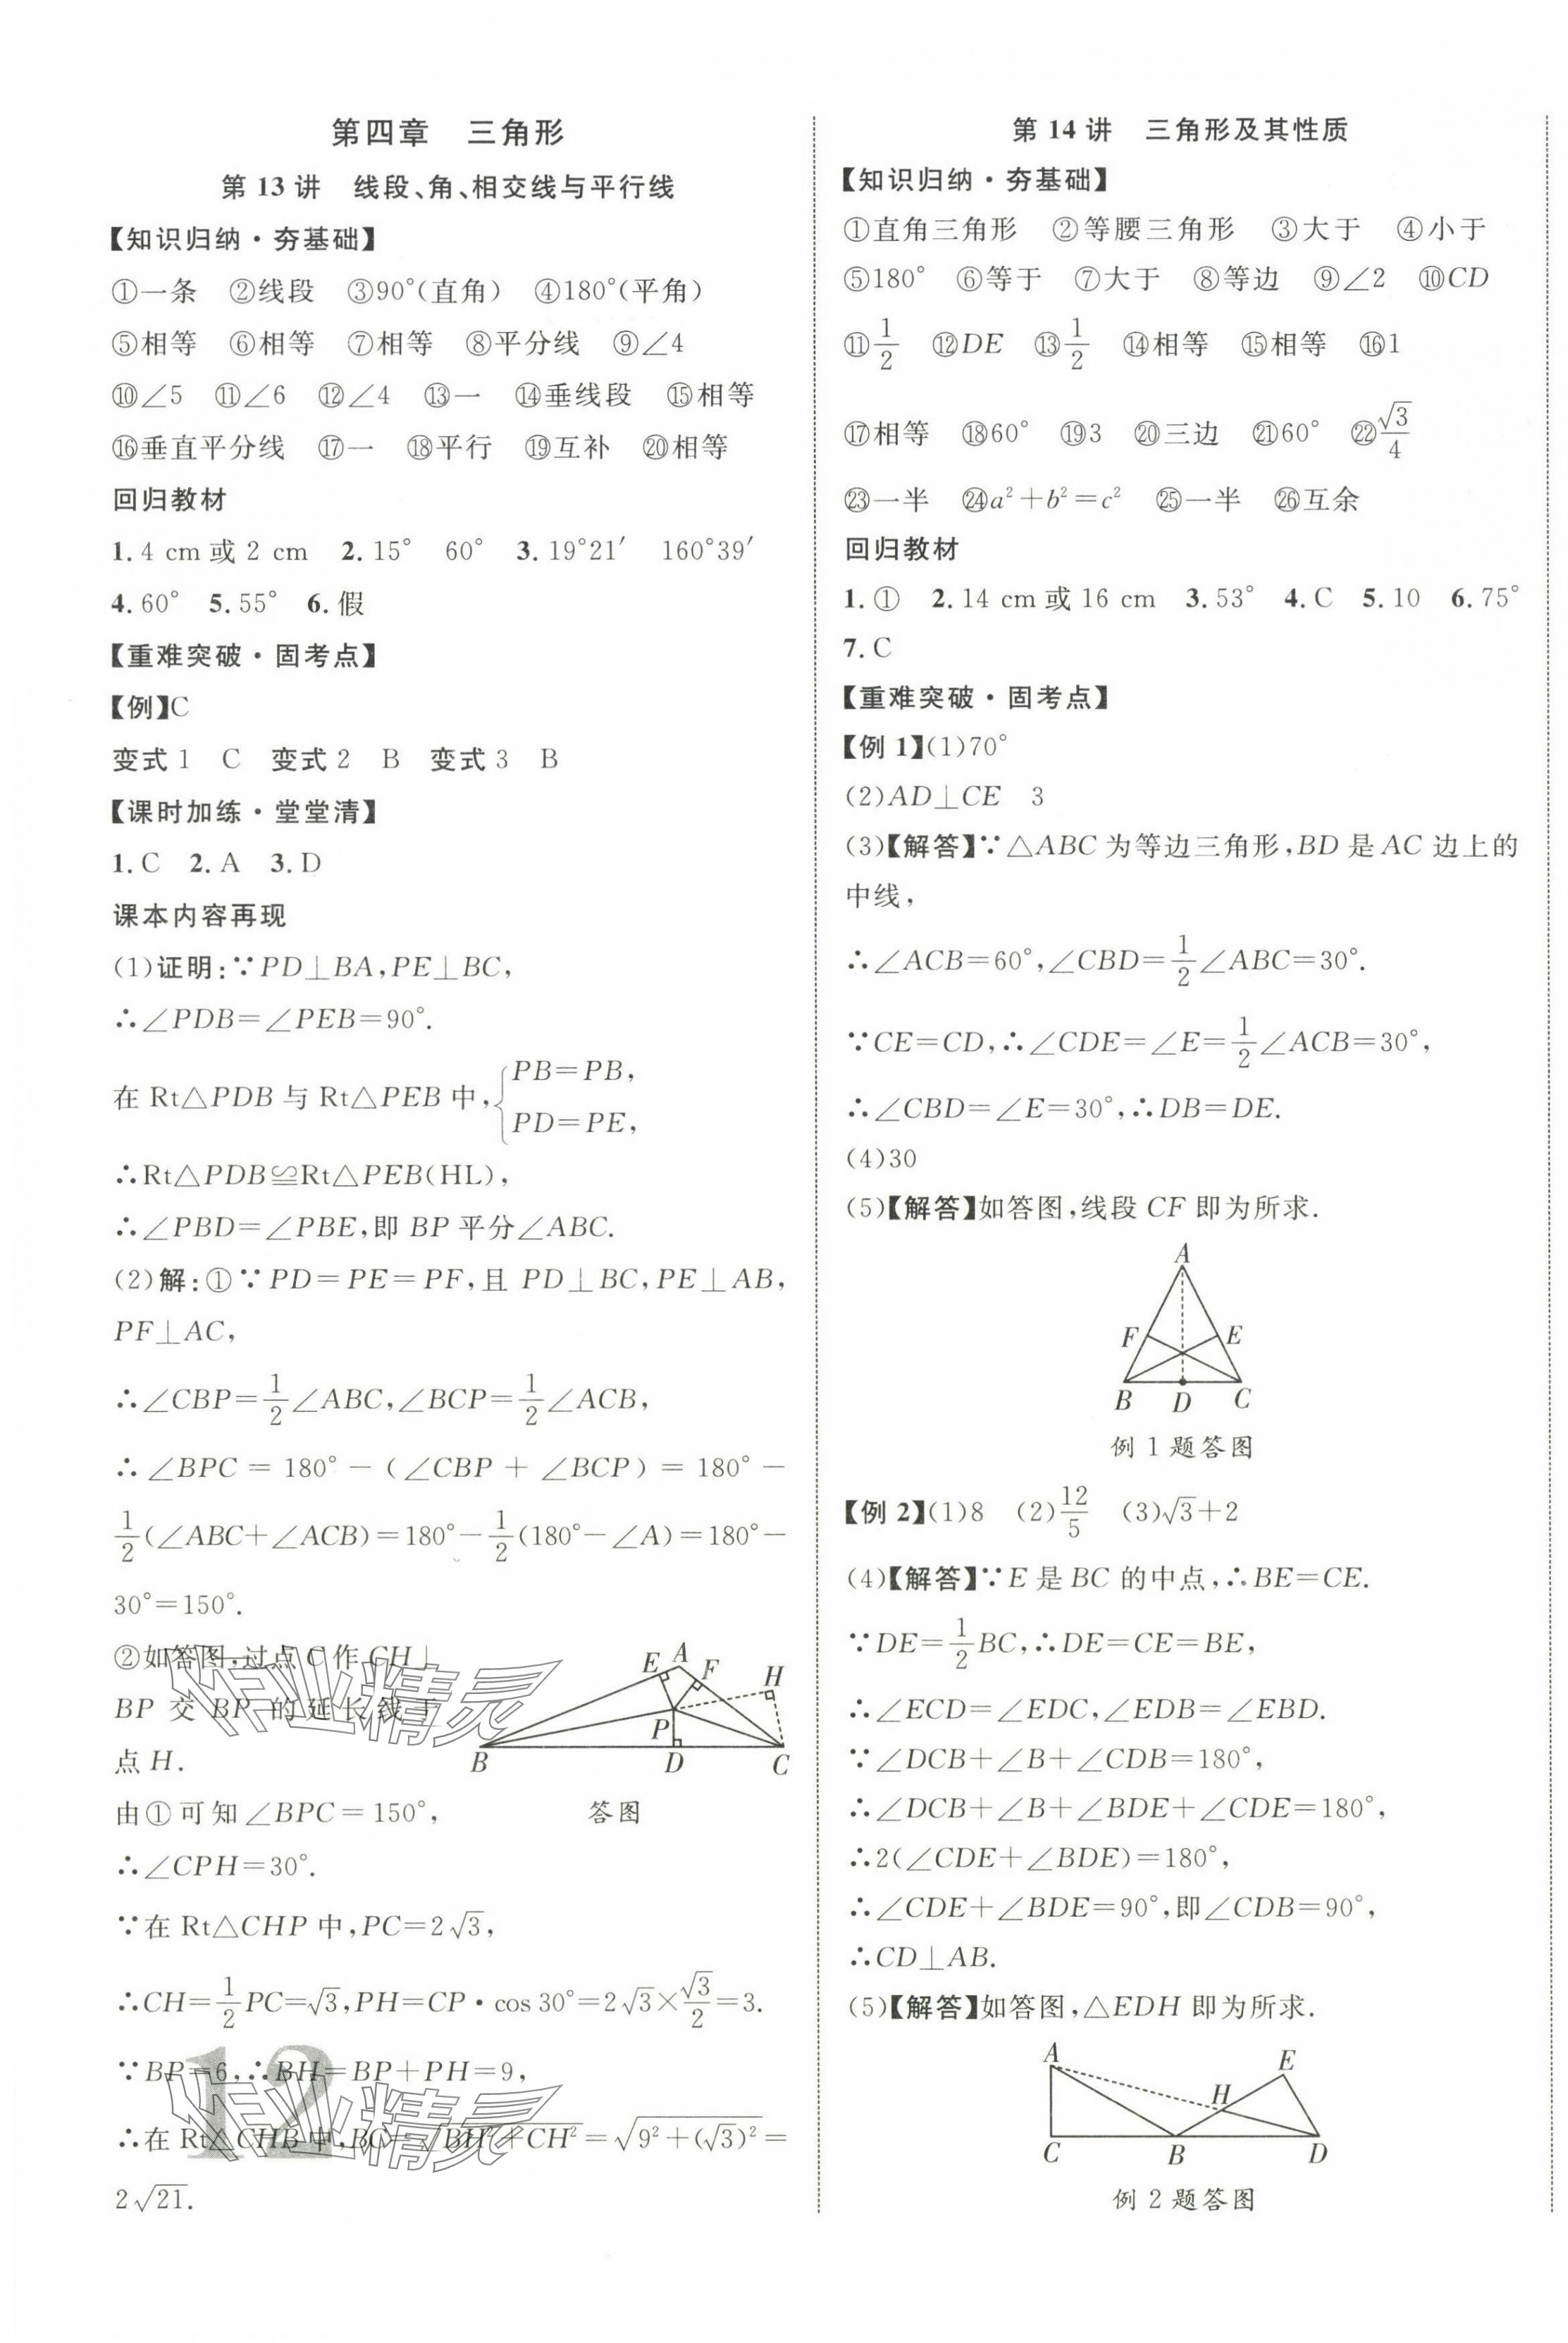 第四章 三角形
第 13 讲 线段、角、相交线与平行线
【知识归纳·夯基础】
①一条 ②线段 ③90°(直角) ④180°(平角)
⑤相等 ⑥相等 ⑦相等 ⑧平分线 ⑨∠4
⑩∠5 ⑪∠6 ⑫∠4 ⑬一 ⑭垂线段 ⑮相等
⑯垂直平分线 ⑰一 ⑱平行 ⑲互补 ⑳相等
回归教材
1. 4 cm 或 2 cm 2. 15° 60° 3. 19°21′ 160°39′
4. 60° 5. 55° 6. 假
【重难突破·固考点】
【例】C
变式 1 C 变式 2 B 变式 3 B
【课时加练·堂堂清】
1. C 2. A 3. D
课本内容再现
(1)证明:∵PD⊥BA,PE⊥BC,
∴∠PDB=∠PEB=90°.
在 Rt△PDB 与 Rt△PEB 中,{PB=PB,
PD=PE,
∴Rt△PDB≌Rt△PEB(HL),
∴∠PBD=∠PBE,即 BP 平分∠ABC.
(2)解:①∵PD=PE=PF,且 PD⊥BC,PE⊥AB,
PF⊥AC,
∴∠CBP=1/2∠ABC,∠BCP=1/2∠ACB,
∴∠BPC=180°-(∠CBP+∠BCP)=180°-
1/2(∠ABC+∠ACB)=180°-1/2(180°-∠A)=180°-
30°=150°.
②如答图,过点 C 作 CH⊥
BP 交 BP 的延长线于
点 H.
E A F H
P
B D C
答图
由①可知∠BPC=150°,
∴∠CPH=30°.
∵在 Rt△CHP 中,PC=2√3,
∴CH=1/2PC=√3,PH=CP·cos 30°=2√3×√3/2=3.
∵BP=6,∴BH=BP+PH=9,
∴在 Rt△CHB 中,BC=√(BH²+CH²)=√(9²+(√3)²)=
2√21.
12
作业精灵
作业精灵
第 14 讲 三角形及其性质
【知识归纳·夯基础】
①直角三角形 ②等腰三角形 ③大于 ④小于
⑤180° ⑥等于 ⑦大于 ⑧等边 ⑨∠2 ⑩CD
⑪1/2 ⑫DE ⑬1/2 ⑭相等 ⑮相等 ⑯1
⑰相等 ⑱60° ⑲3 ⑳三边 ㉑60° ㉒√3/4
㉓一半 ㉔a²+b²=c² ㉕一半 ㉖互余
回归教材
1. ① 2. 14 cm 或 16 cm 3. 53° 4. C 5. 10 6. 75°
7. C
【重难突破·固考点】
【例 1】(1)70°
(2)AD⊥CE 3
(3)【解答】∵△ABC 为等边三角形,BD 是 AC 边上的
中线,
∴∠ACB=60°,∠CBD=1/2∠ABC=30°.
∵CE=CD,∴∠CDE=∠E=1/2∠ACB=30°,
∴∠CBD=∠E=30°,∴DB=DE.
(4)30
(5)【解答】如答图,线段 CF 即为所求.
A
F E
B D C
例 1 题答图
【例 2】(1)8 (2)12/5 (3)√3+2
(4)【解答】∵E 是 BC 的中点,∴BE=CE.
∵DE=1/2BC,∴DE=CE=BE,
∴∠ECD=∠EDC,∠EDB=∠EBD.
∵∠DCB+∠B+∠CDB=180°,
∴∠DCB+∠B+∠BDE+∠CDE=180°,
∴2(∠CDE+∠BDE)=180°,
∴∠CDE+∠BDE=90°,即∠CDB=90°,
∴CD⊥AB.
(5)【解答】如答图,△EDH 即为所求.
A E
H
C B D
例 2 题答图